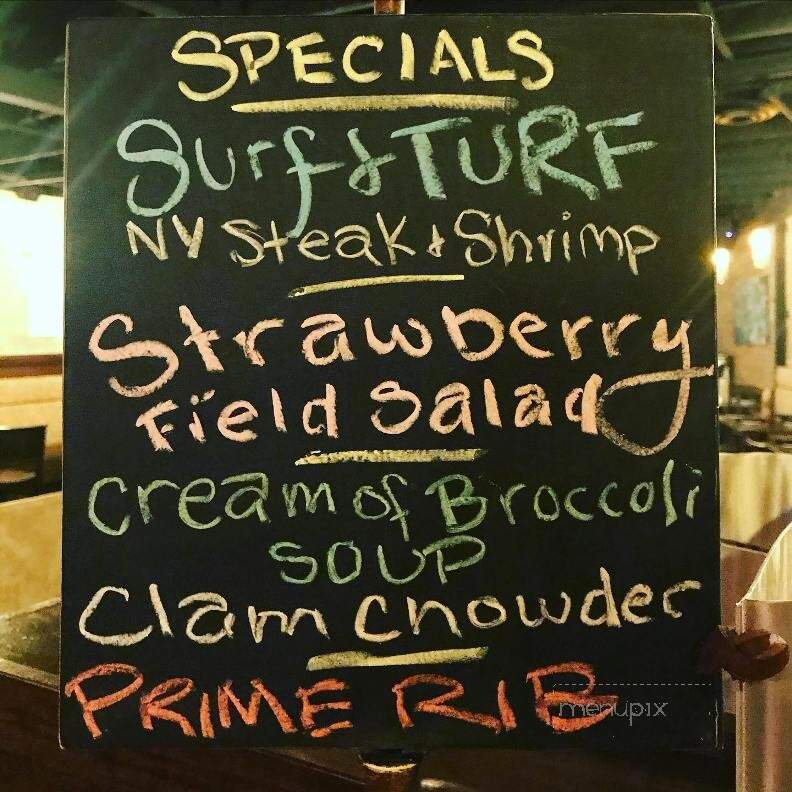 SPECIALS
Surf & TURF
NY Steak & Shrimp
Strawberry
Field Salad
Cream of Broccoli
SOUP
Clam Chowder
PRIME RIB
menupix